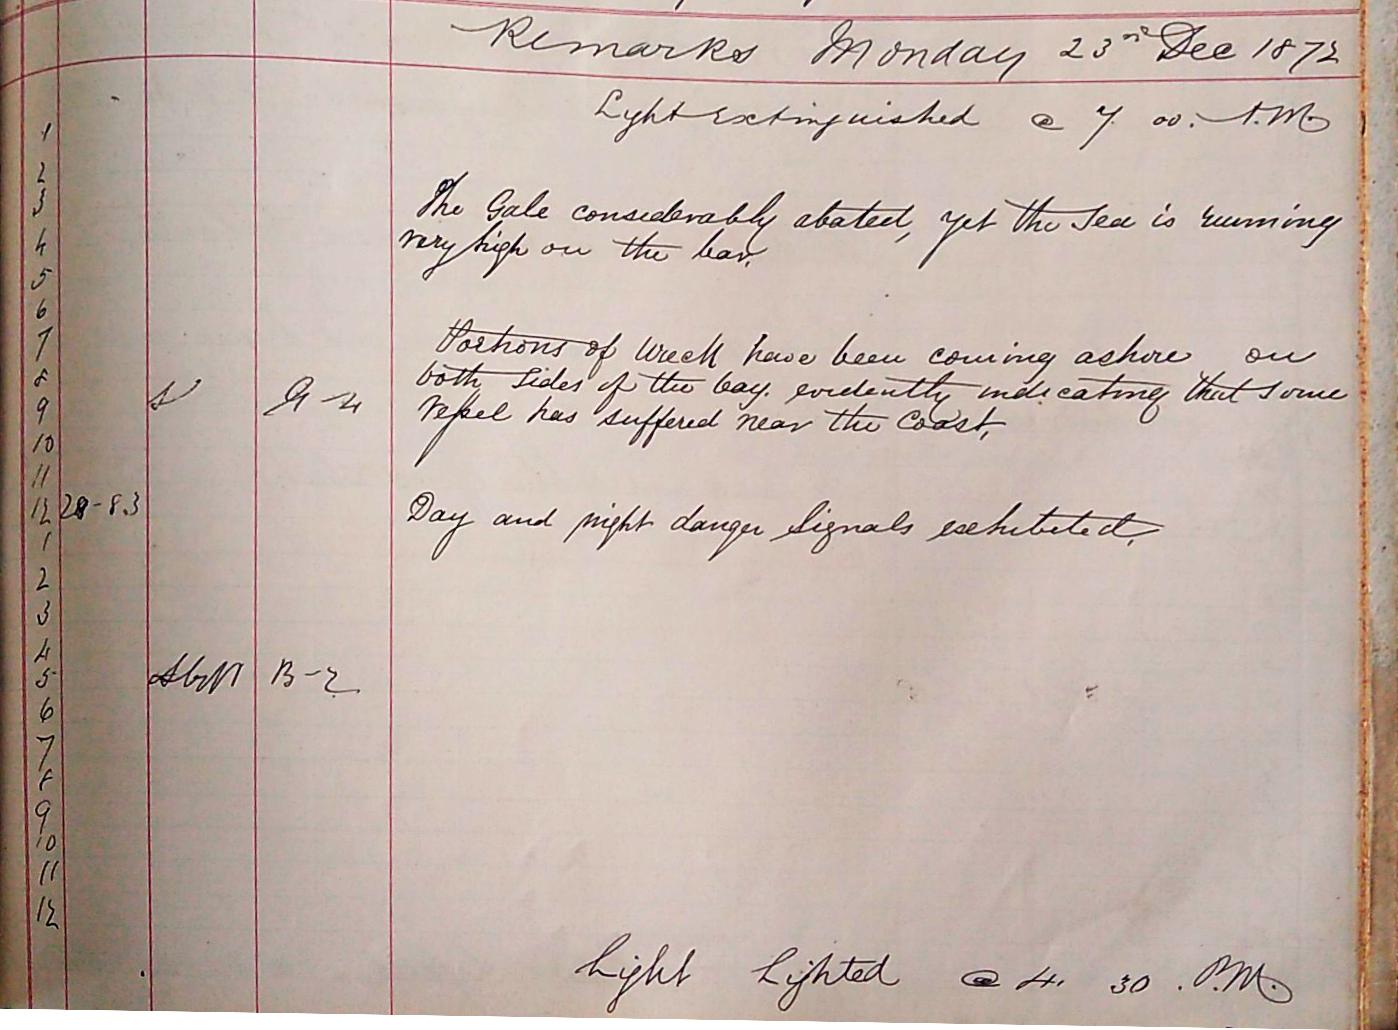 Remarks Monday 23rd Dec 1872
Light Extinguished @ 7. 00. A.M.
1
2
The Gale considerably abated, yet the Sea is running
3
very high on the bar.
4
5
6
Portions of Wreck have been coming ashore on
7
both Sides of the bay. evidently indicating that some
8
S G-4
9
Vessel has suffered near the Coast,
10
11
12 28-8.3
Day and night danger Signals exhibited,
1
2
3
4
5 SbyW B-2
6
7
8
9
10
11
12
Light Lighted @ 4. 30. P.M.